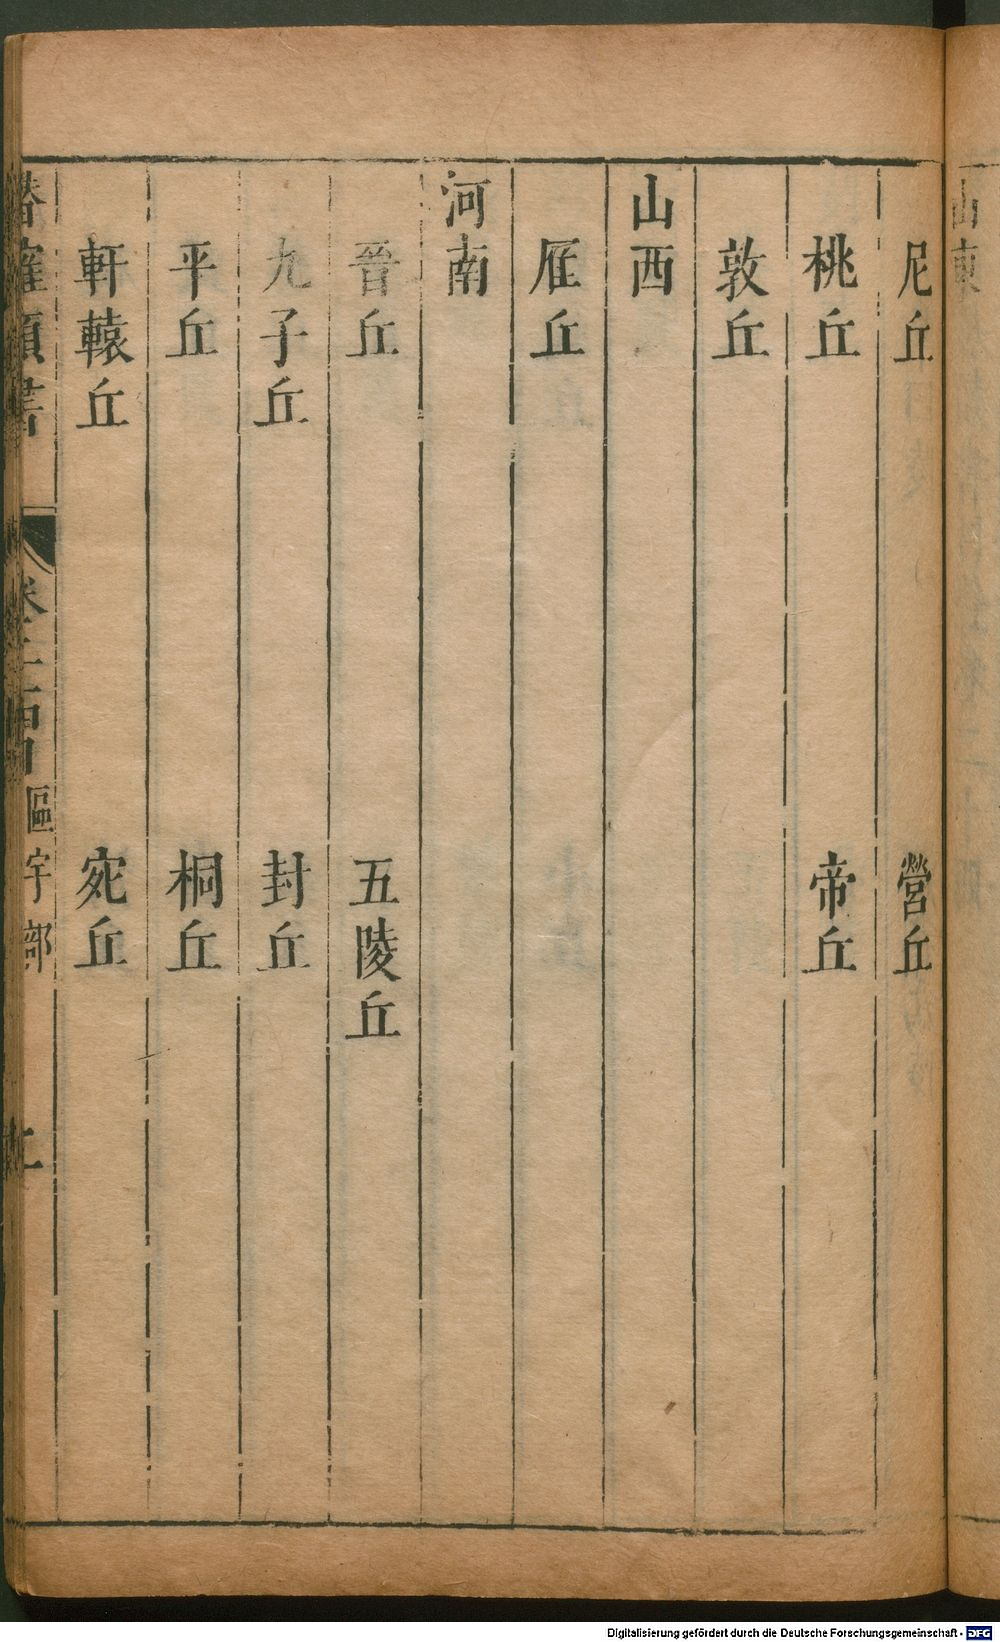 山東
尼丘 營丘
桃丘 帝丘
敦丘
山西
雁丘
河南
晉丘 五陵丘
九子丘 封丘
平丘 桐丘
軒轅丘 宛丘
潛確類書 卷二十四 區宇部
Digitalisierung gefördert durch die Deutsche Forschungsgemeinschaft - DFG